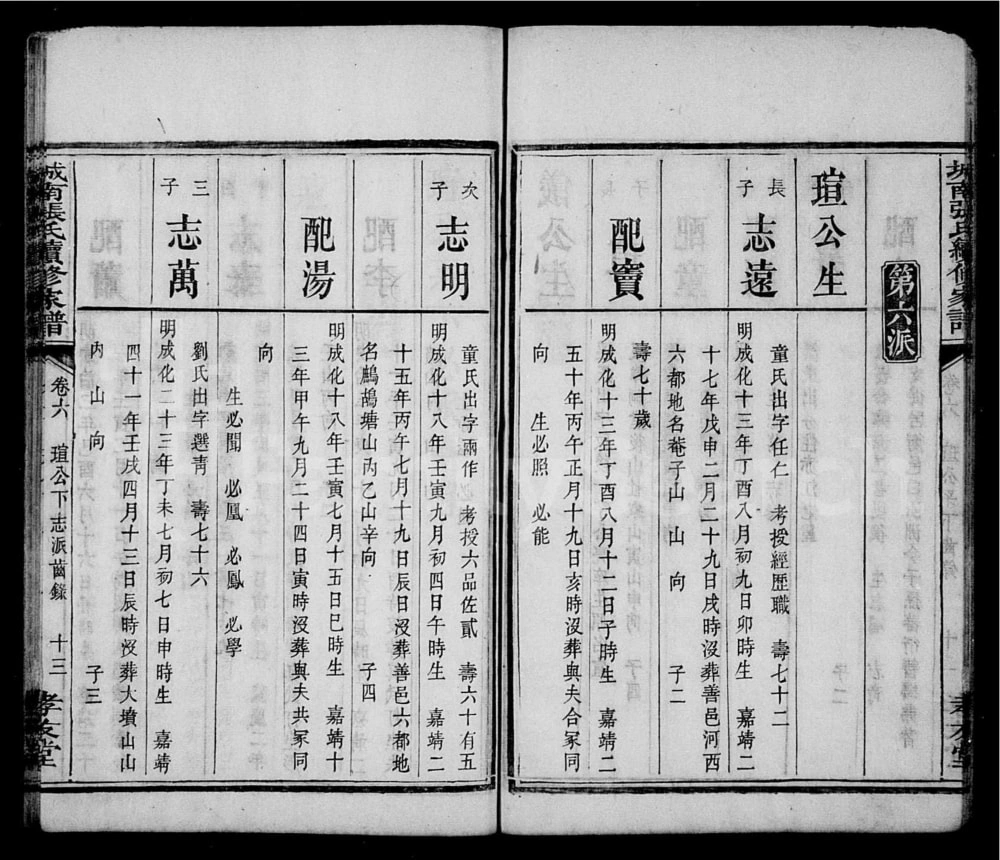 第六派
瑄公生
長子
志遠
童氏出字任仁　考授經歷職　壽七十二
明成化十三年丁酉八月初九日卯時生　嘉靖二
十七年戊申二月二十九日戌時沒葬善邑河西
六都地名菴子山　山　向　　子二
配竇
壽七十歲
明成化十三年丁酉八月十二日子時生　嘉靖二
五十年丙午正月十九日亥時沒葬與夫合冢同
向　　生必照　必能
次子
志明
童氏出字兩作　考授六品佐貳　壽六十有五
明成化十八年壬寅九月初四日午時生　嘉靖二
十五年丙午七月十九日辰日沒葬善邑六都地
名鷓鴣塘山丙乙山辛向　　子四
配湯
明成化十八年壬寅七月十五日巳時生　嘉靖十
三年甲午九月二十四日寅時沒葬與夫共冢同
向　　生必聞　必凰　必鳳　必學
三子
志萬
劉氏出字選青　壽七十六
明成化二十三年丁未七月初七日申時生　嘉靖
四十一年壬戌四月十三日辰時沒葬大墳山山
內　山　向　　子三
城南張氏續修家譜
卷六　瑄公下志派齒錄　十三
孝友堂